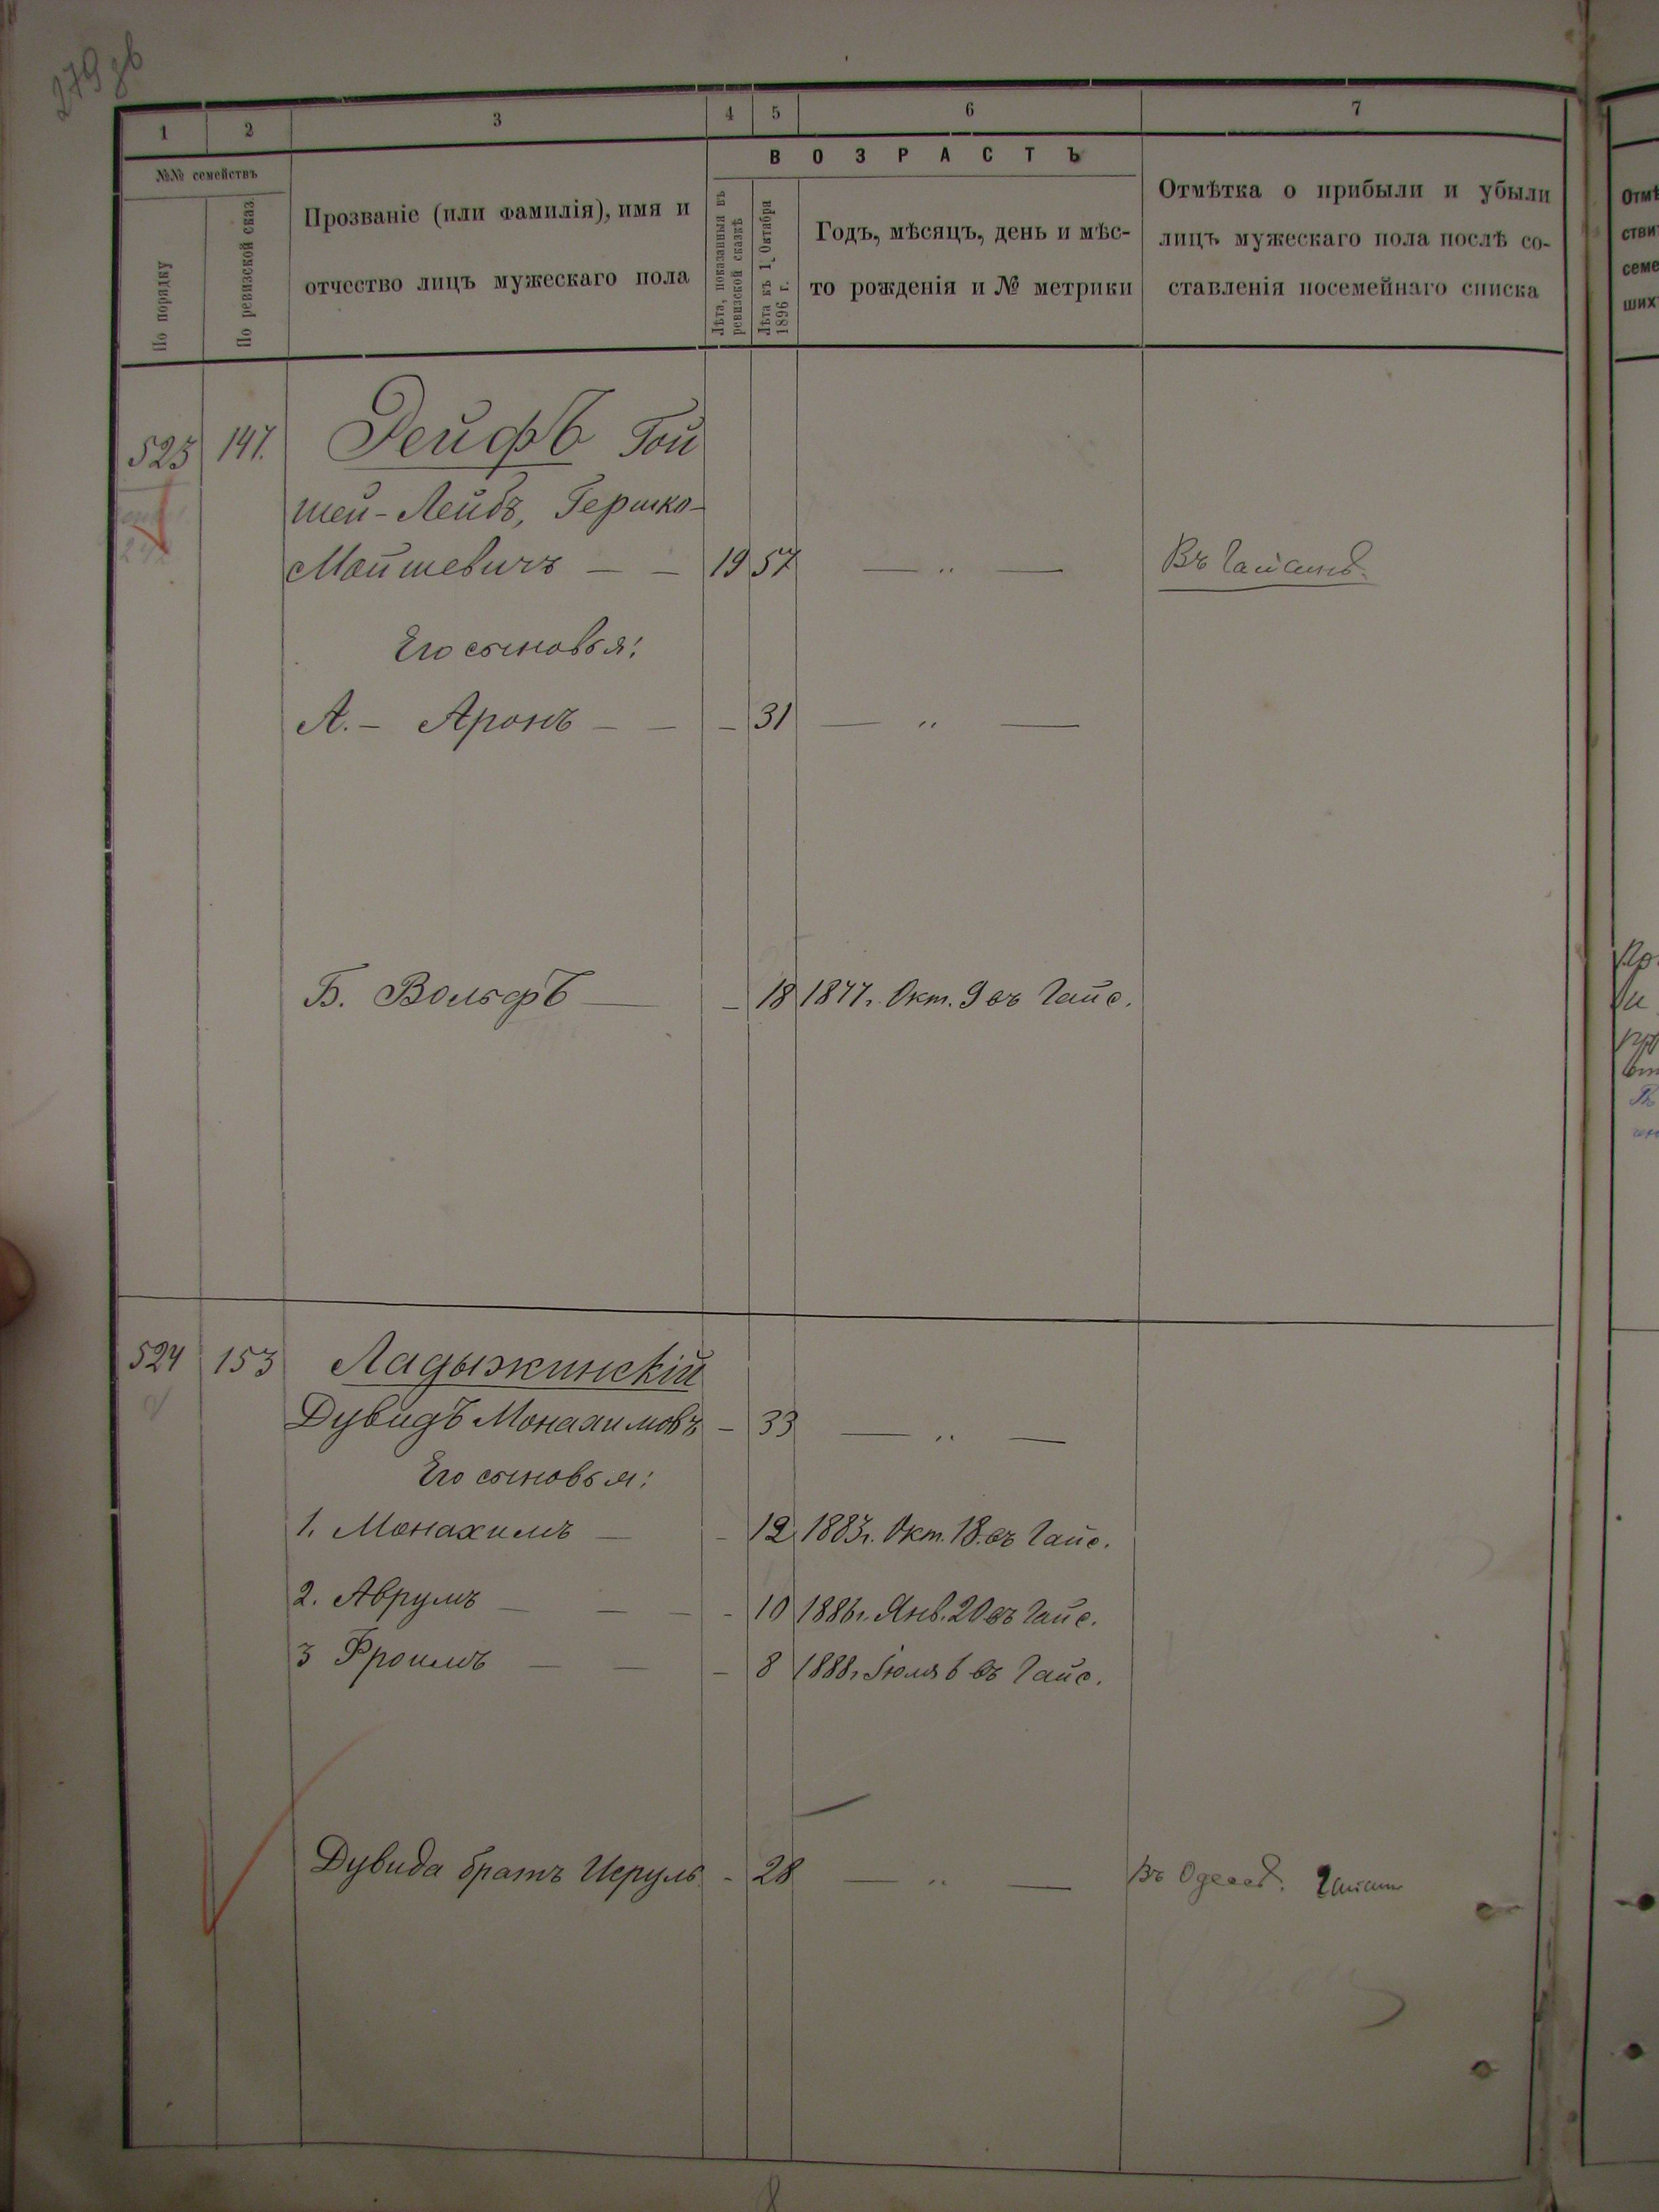 279 зв
1 2 3 4 5 6 7
№№ семействъ
По порядку
По ревизской сказ.
Прозваніе (или фамилія), имя и
отчество лицъ мужескаго пола
ВОЗРАСТЪ
Лѣта, показанныя въ
ревизской сказкѣ
Лѣта къ 1 Октября
1896 г.
Годъ, мѣсяцъ, день и мѣс-
то рожденія и № метрики
Отмѣтка о прибыли и убыли
лицъ мужескаго пола послѣ со-
ставленія посемейнаго списка
523 147. Дейфъ Гой
шей-Лейбъ, Гершко-
Мойшевичъ — — 19 57 — „ — Въ Гайсинѣ.
Его сыновья:
А. – Аронъ — — – 31 — „ —
Б. Вольфъ — – 18 1877 г. Окт. 9 въ Гайс.
524 153 Ладыжинскій
Дувидъ Монахимовъ – 33 — „ —
Его сыновья:
1. Монахимъ — – 12 1883 г. Окт. 18. въ Гайс.
2. Аврумъ — — – 10 1886 г. Янв. 20 въ Гайс.
3 Фроимъ — — – 8 1888 г. Іюля 6 въ Гайс.
Дувида братъ Исруль – 28 — „ — Въ Одессѣ.